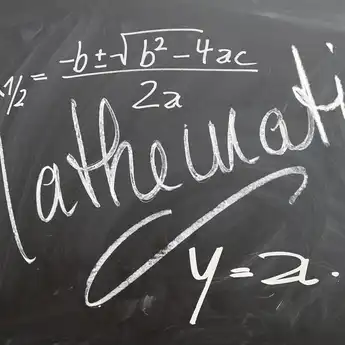 1/2 = -b ± √b² - 4ac / 2a
Mathemati
y = a.